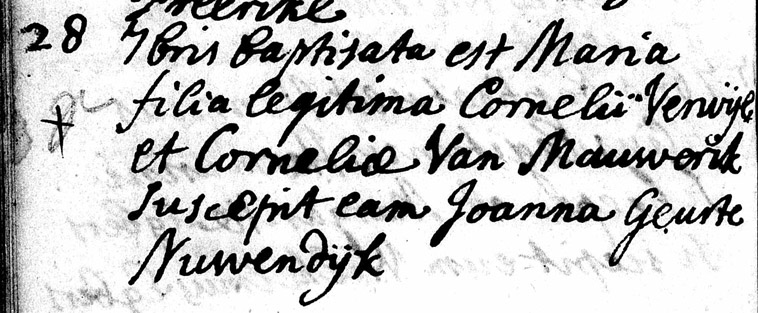 Freerike
28 7bris baptisata est Maria
filia legitima Cornelii Verwijk
et Corneliæ Van Mauwerik
suscepit eam Joanna Geurte
Nuwendijk